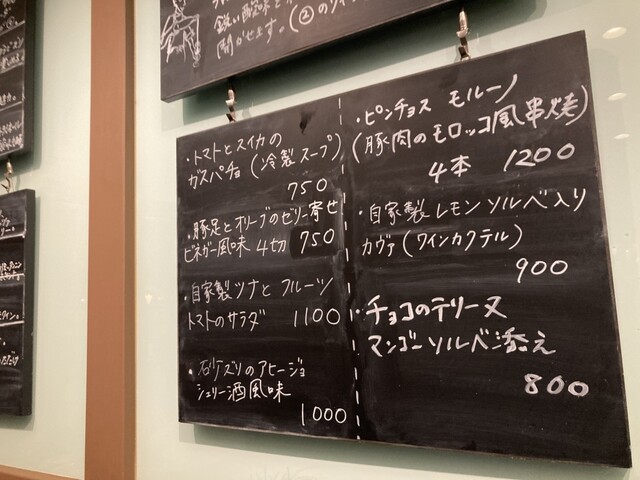 鋭い酸味と
開かせます。(②のワイン
・トマトとスイカの
ガスパチョ(冷製スープ)
750
・豚足とオリーブのゼリー寄せ
ビネガー風味 4切 750
・自家製ツナと フルーツ
トマトのサラダ 1100
・砂ズリのアヒージョ
シェリー酒風味
1000
・ピンチョス モルーノ
(豚肉のモロッコ風串焼)
4本 1200
・自家製レモンソルベ入り
カヴァ(ワインカクテル)
900
・チョコのテリーヌ
マンゴーソルベ添え
800